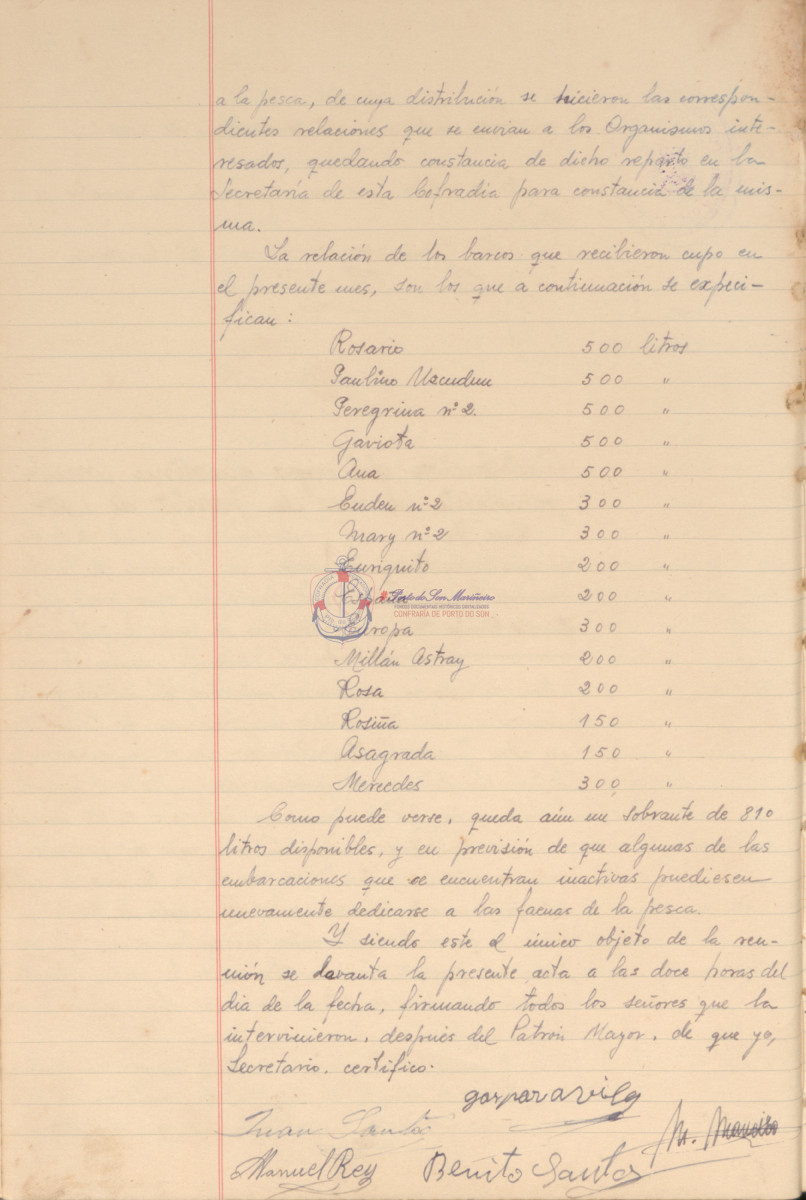 a la pesca, de cuya distribución se hicieron las correspon-
dientes relaciones que se envian a los Organismos inte-
resados, quedando constancia de dicho reparto en la
Secretaría de esta Cofradía para constancia de la mis-
ma.
La relación de los barcos que recibieron cupo en
el presente mes, son los que a continuación se expeci-
fican:
Rosario 500 litros
Paulino Uzcudun 500 "
Peregrina nº 2. 500 "
Gaviota 500 "
Ana 500 "
Euden nº 2 300 "
Mary nº 2 300 "
Euriquito 200 "
España 200 "
Porto do Son Mariñeiro
FONDOS DOCUMENTAIS HISTÓRICOS DIXITALIZADOS
CONFRARÍA DE PORTO DO SON
Europa 300 "
Millán Astray 200 "
Rosa 200 "
Rosiña 150 "
Asagrada 150 "
Mercedes 300 "
Como puede verse, queda aún un sobrante de 810
litros disponibles, y en previsión de que algunas de las
embarcaciones que se encuentran inactivas puediesen
nuevamente dedicarse a las faenas de la pesca.
Y siendo este el único objeto de la reu-
nión se levanta la presente acta a las doce horas del
día de la fecha, firmando todos los señores que la
intervinieron, después del Patrón Mayor, de que yo,
Secretario, certifico.
gaspar avila
Juan Santos
Manuel Rey Benito Santos